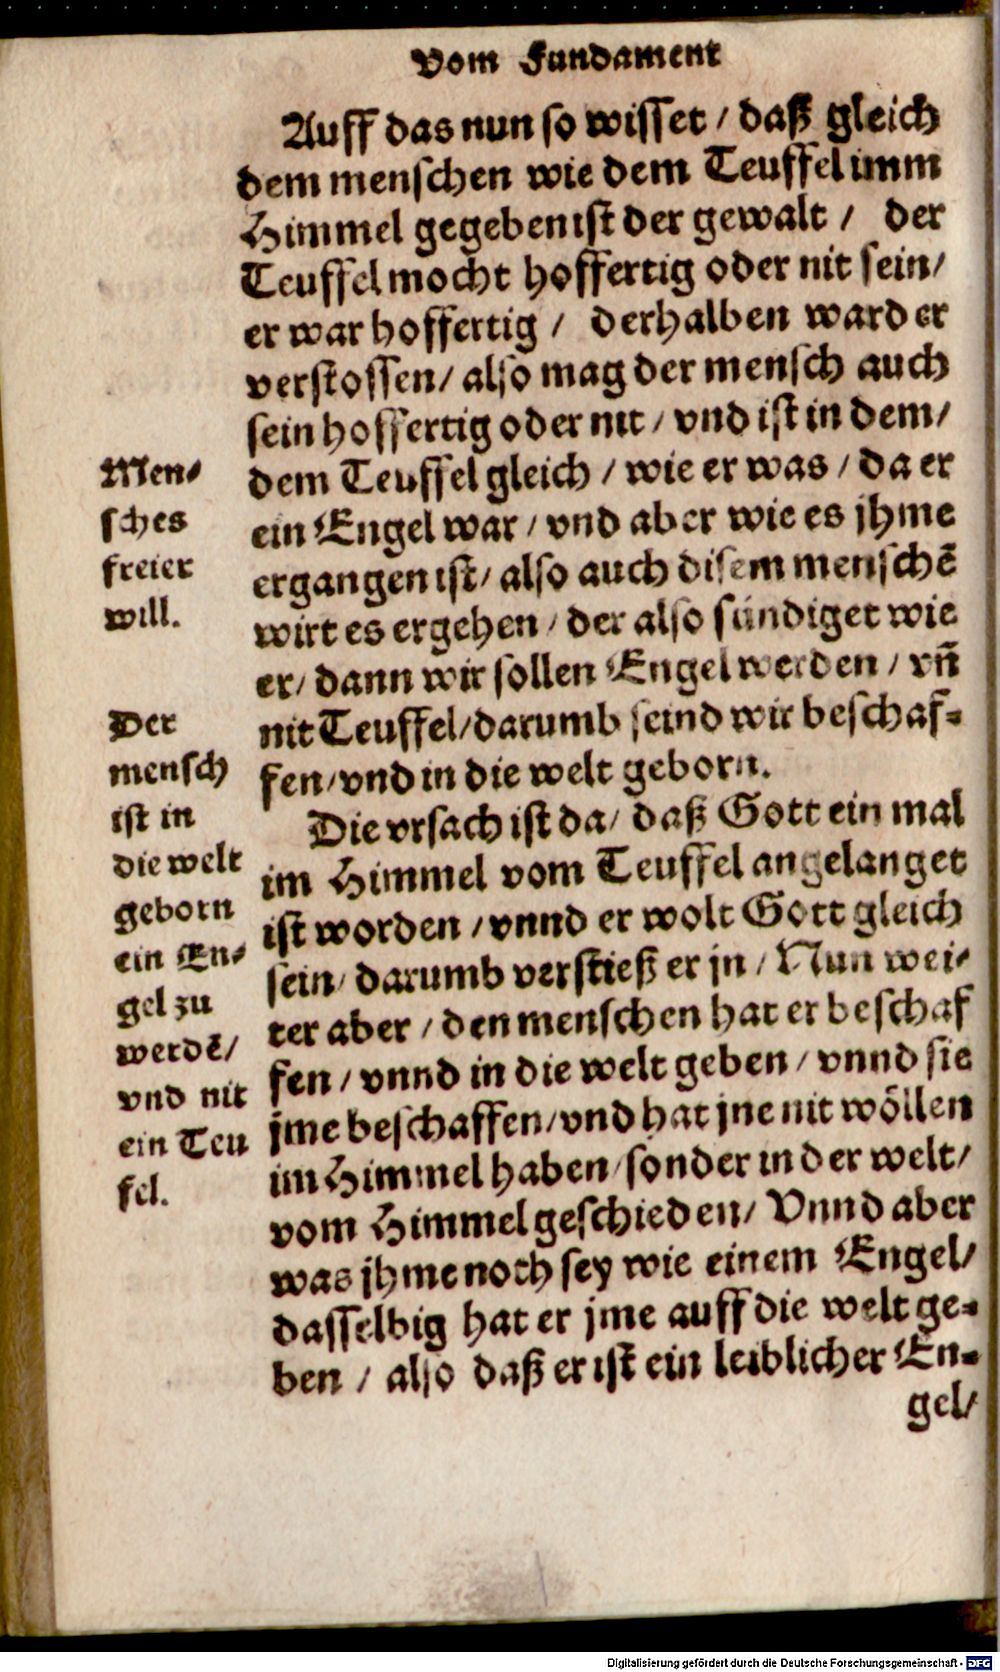 Vom Fundament
Auff das nun so wisset / daß gleich
dem menschen wie dem Teuffel imm
Himmel gegeben ist der gewalt / der
Teuffel mocht hoffertig oder nit sein /
er war hoffertig / derhalben ward er
verstossen / also mag der mensch auch
sein hoffertig oder nit / vnd ist in dem /
dem Teuffel gleich / wie er was / da er
ein Engel war / vnd aber wie es jhme
ergangen ist / also auch disem menschē
wirt es ergehen / der also sündiget wie
er / dann wir sollen Engel werden / vñ
nit Teuffel / darumb seind wir beschaf-
fen / vnd in die welt geborn.
Die vrsach ist da / daß Gott ein mal
im Himmel vom Teuffel angelanget
ist worden / vnnd er wolt Gott gleich
sein / darumb verstieß er jn / Nun wei-
ter aber / den menschen hat er beschaf
fen / vnnd in die welt geben / vnnd sie
jme beschaffen / vnd hat jne nit wöllen
im Himmel haben / sonder in der welt /
vom Himmel geschieden / Vnnd aber
was jhme noch sey wie einem Engel /
dasselbig hat er jme auff die welt ge-
ben / also daß er ist ein leiblicher En-
gel /
Men-
sches
freier
will.
Der
mensch
ist in
die welt
geborn
ein En-
gel zu
werdē /
vnd nit
ein Teu
fel.
Digitalisierung gefördert durch die Deutsche Forschungsgemeinschaft - DFG